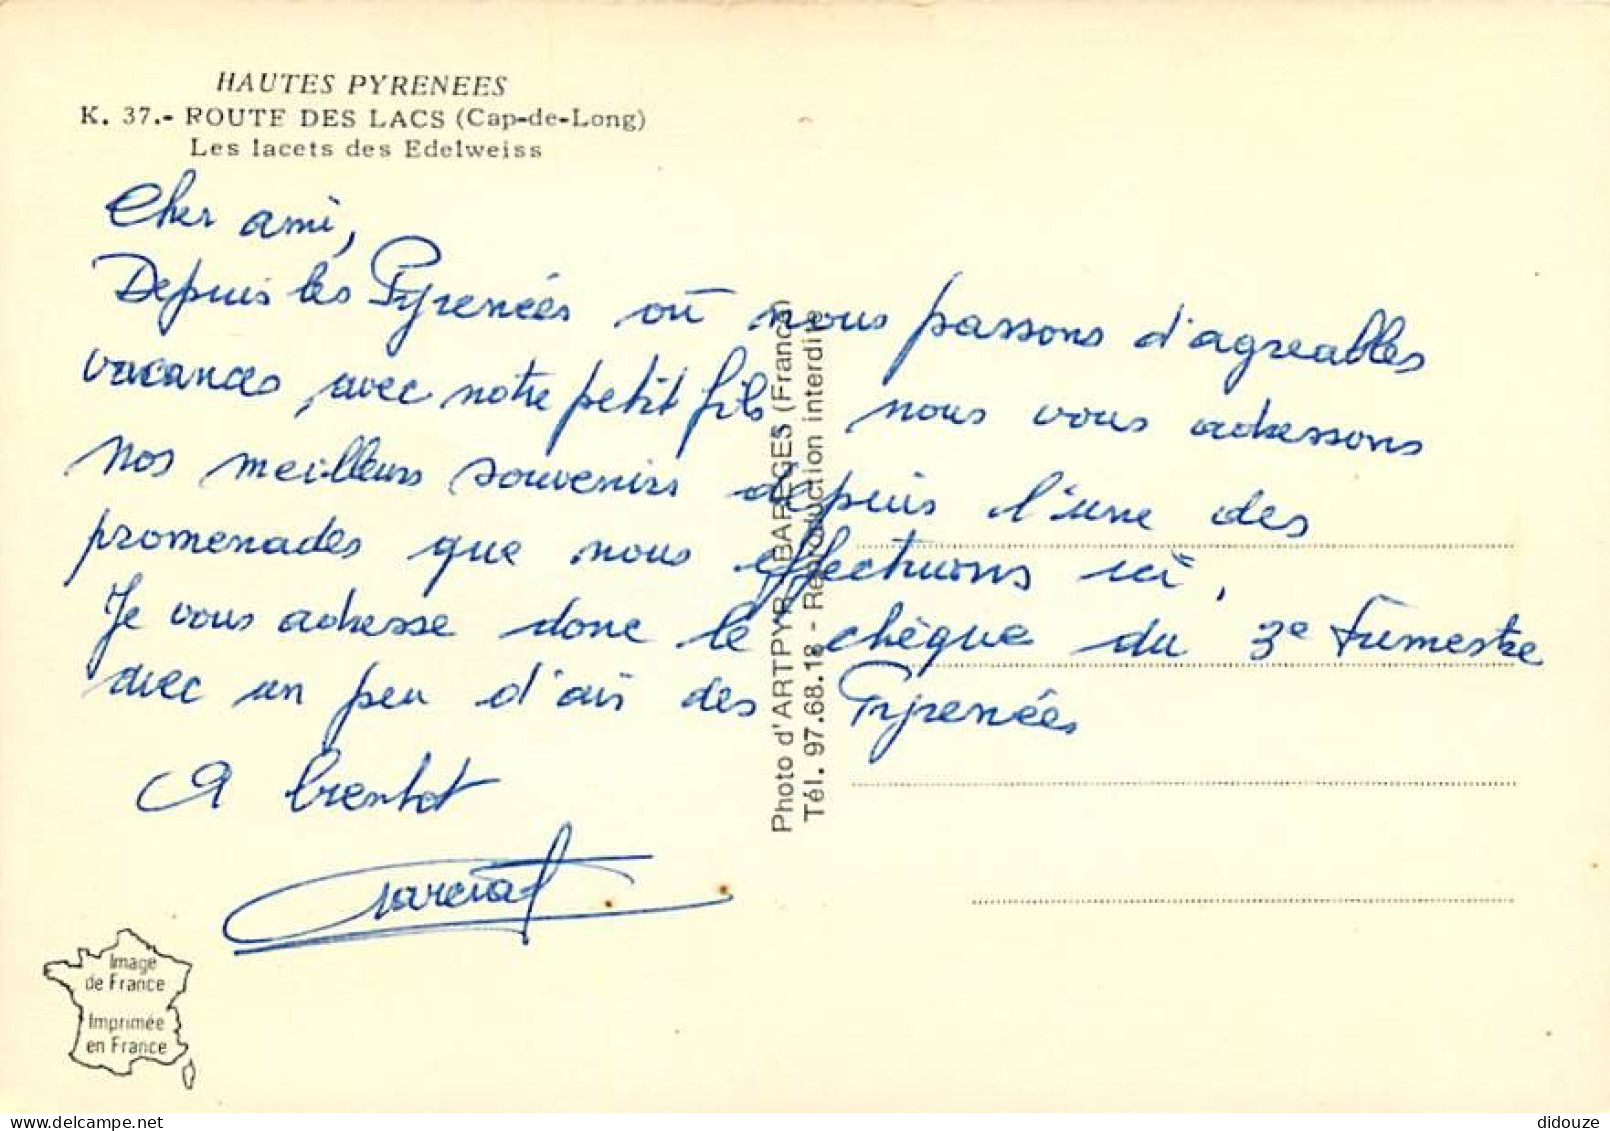 HAUTES PYRENEES
K. 37.- ROUTE DES LACS (Cap-de-Long)
Les lacets des Edelweiss
Cher ami,
Depuis les Pyrenées où nous passons d'agreables
vacances, avec notre petit fils nous vous adressons
nos meilleurs souvenirs depuis l'une des
promenades que nous effectuons ici.
Je vous adresse donc le chèque du 3e trimestre
avec un peu d'air des Pyrenées
A bientot
Photo d'ARTPYR BAREGES (France)
Tél. 97.68.18 - Reproduction interdite
Image
de France
Imprimée
en France
didouze